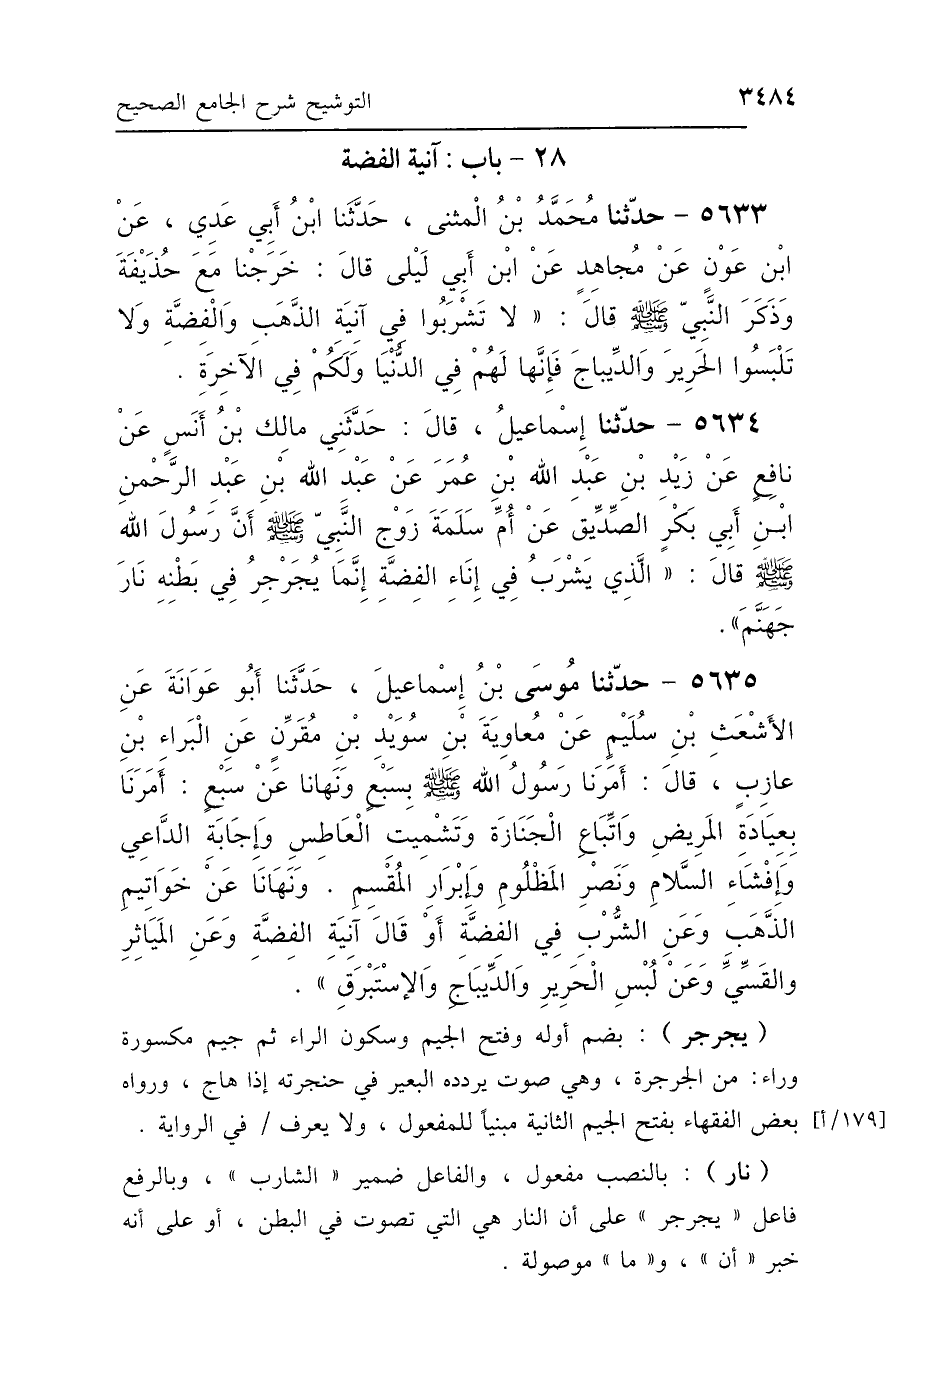 ٣٤٨٤ التوشيح شرح الجامع الصحيح
٢٨ - باب : آنية الفضة
٥٦٣٣ - حدّثنا مُحَمَّدُ بْنُ الْمثنى ، حَدَّثَنا ابْنُ أَبي عَدي ، عَنْ
ابْن عَوْنٍ عَنْ مُجاهِدٍ عَنْ ابن أَبي لَيْلى قالَ : خَرَجْنا مَعَ حُذَيْفَةَ
وَذَكَرَ النَّبيّ ﷺ قالَ : « لا تَشْرَبُوا فِي آنِيَةِ الذَّهَبِ وَالْفِضَّةِ وَلا
تَلْبَسُوا الحَريرَ وَالدِّيباجَ فَإِنَّها لَهُمْ فِي الدُّنْيَا وَلَكُمْ فِي الآخِرَةِ .
٥٦٣٤ - حدّثنا إِسْماعيلُ ، قالَ : حَدَّثَني مالك بْنُ أَنَسٍ عَنْ
نافِعٍ عَنْ زَيْدِ بْنِ عَبْدِ الله بْنِ عُمَرَ عَنْ عَبْدِ الله بْنِ عَبْدِ الرَّحْمنِ
ابْـنِ أَبِي بَكْرٍ الصِّدِّيقِ عَنْ أُمِّ سَلَمَةَ زَوْجِ النَّبِيّ ﷺ أَنَّ رَسُولَ الله
ﷺ قالَ : « الَّذِي يَشْرَبُ فِي إِنَاءِ الفِضَّةِ إِنَّمَا يُجَرْجِرُ فِي بَطْنِهِ نَارَ
جَهَنَّمَ».
٥٦٣٥ - حدّثنا مُوسَى بْنُ إِسْماعيلَ ، حَدَّثَنا أَبُو عَوَانَةَ عَنِ
الأَشْعَثِ بْنِ سُلَيْمٍ عَنْ مُعاوِيَةَ بْنِ سوَيْدِ بْنِ مُقَرِّنٍ عَنِ الْبَراءِ بْنِ
عازِبٍ ، قالَ : أَمَرَنا رَسُولُ الله ﷺ بِسَبْعٍ وَنَهانا عَنْ سَبْعٍ : أَمَرَنَا
بِعِيَادَةِ المَرِيضِ وَاتِّبَاعِ الْجَنَازَةِ وَتَشْمِيتِ الْعَاطِسِ وَإِجَابَةِ الدَّاعِي
وَإِفْشَاءِ السَّلامِ وَنَصْرِ المَظْلُومِ وَإِبْرَارِ المُقْسِمِ . وَنَهَانَا عَنْ خَوَاتِيمِ
الذَّهَبِ وَعَنِ الشُّرْبِ فِي الفِضَّةِ أَوْ قَالَ آنِيَةِ الفِضَّةِ وَعَنِ المَيَاثِرِ
والقَسِّيِّ وَعَنْ لُبْسِ الْحَرِيرِ وَالدِّيبَاجِ وَالإِسْتَبْرَقِ » .
( يجرجر ) : بضم أوله وفتح الجيم وسكون الراء ثم جيم مكسورة
وراء: من الجرجرة ، وهي صوت يردده البعير في حنجرته إذا هاج ، ورواه
[١٧٩/أ] بعض الفقهاء بفتح الجيم الثانية مبنياً للمفعول ، ولا يعرف / في الرواية .
( نار ) : بالنصب مفعول ، والفاعل ضمير « الشارب » ، وبالرفع
فاعل « يجرجر » على أن النار هي التي تصوت في البطن ، أو على أنه
خبر « أن » ، و« ما » موصولة .